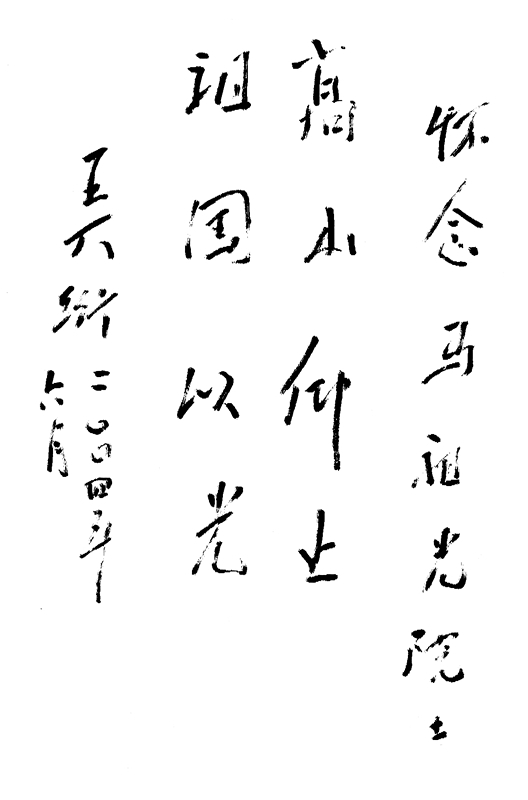 怀念马祖光院士
高山仰止
祖国以光
王大珩
二〇〇四年
六月